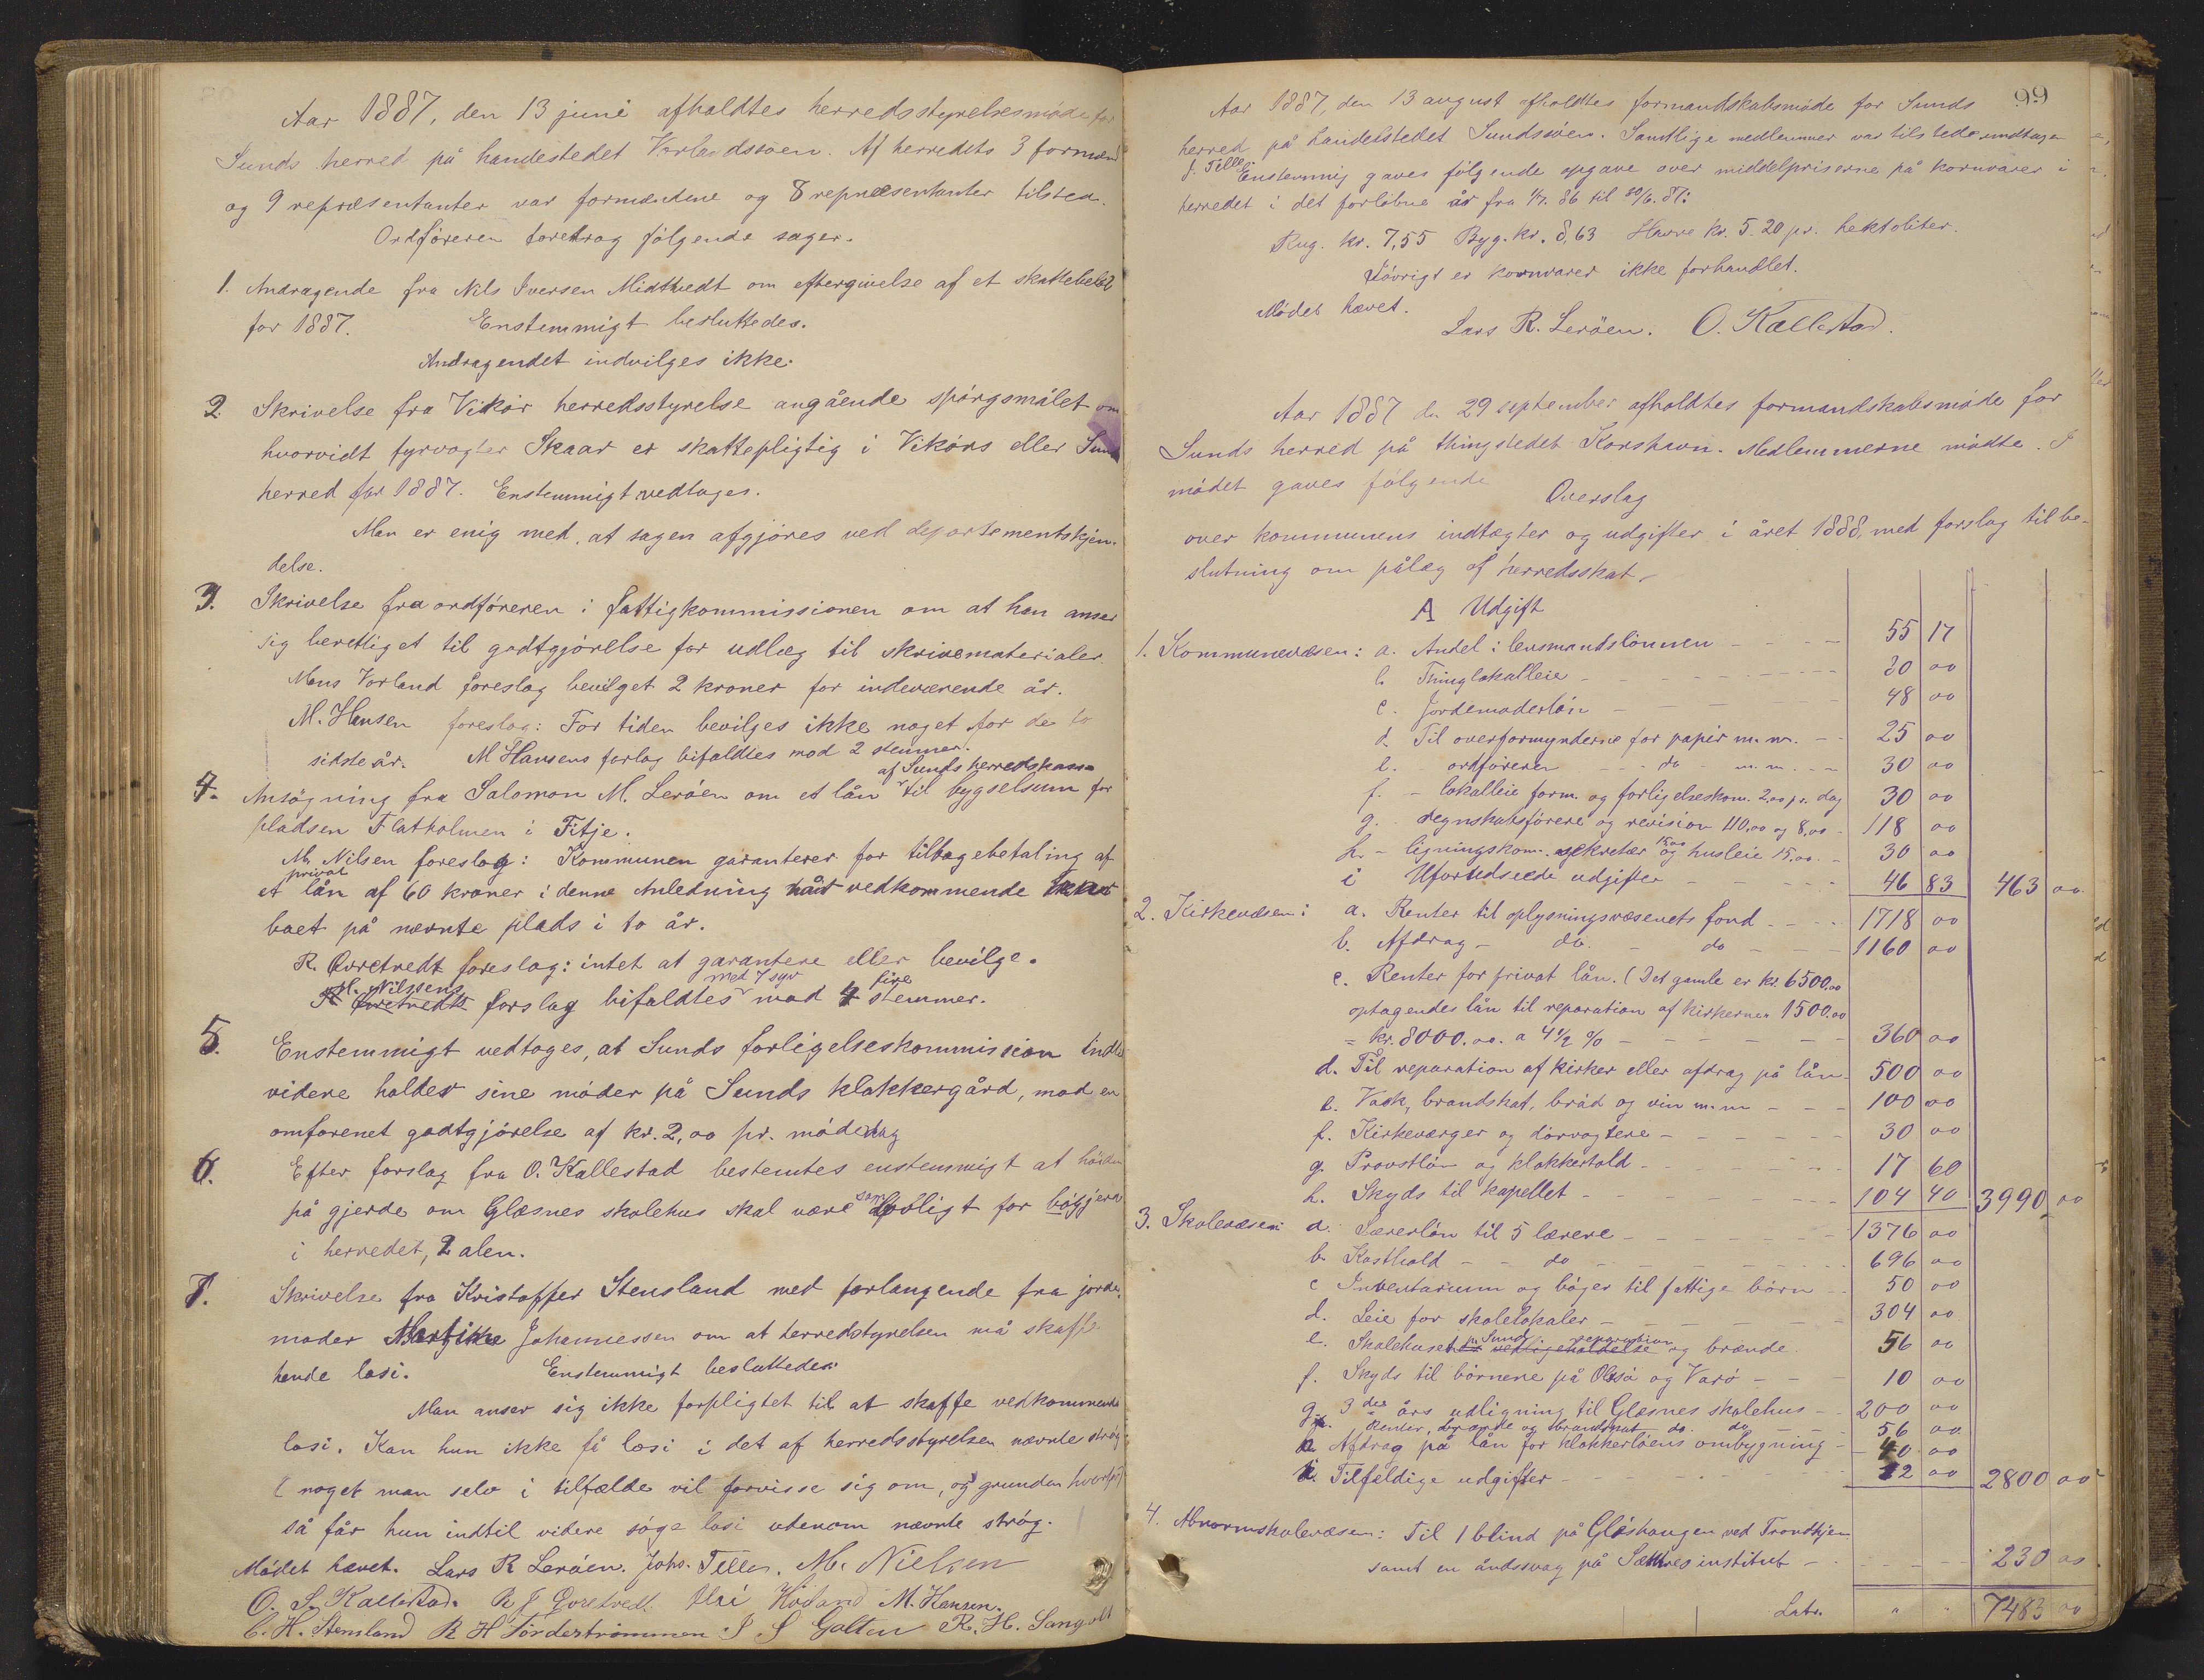 Aar 1887, den 13 juni afholdtes herredsstyrelsesmöde for
Sunds herred på handestedet Vorlandsvåen. Af herredets 3 formænd
og 9 repræsentanter var formændene og 8 repræsentanter tilsted.
Ordföreren foretrog fölgende sager.
1. Andragende fra Nils Iversen Midttvedt om eftergivelse af et skattebelöb
for 1887. Enstemmigt besluttedes.
Andragendet indvilges ikke.
2 Skrivelse fra Vikör herredsstyrelse angående spörgsmålet om
hvorvidt fyrvogter Skaar er skattepligtig i Vikörs eller Sunds
herred for 1887. Enstemmigt vedtoges.
Man er enig med, at sagen afgjöres ved departementskjen-
delse.
3. Skrivelse fra ordföreren i fattigkommissionen om at han anser
sig berettiget til godtgjörelse for udlæg til skrivematerialer.
Mons Vorland foreslog bevilget 2 kroner for indeværende år.
M. Hansen foreslog: For tiden bevilges ikke noget for de to
sidste år. M Hansens forlag bifaldtes mod 2 stemmer.
af Sunds herredskasse
4. Ansögning fra Salomon M. Leröen om et lån til bygselsum for
pladsen Flatholmen i Fitje.
M. Nilsen foreslog: Kommunen garanterer for tilbagebetaling af
privat
et lån af 60 kroner i denne Anledning når vedkommende har
boet på nævnte plads i to år.
R. Qvretvedt foreslog: intet at garantere eller bevilge.
M. Nilssens med 7 syv fire
R Qvretvedts forslag bifaldtes mod 4 stemmer.
5. Enstemmigt vedtoges, at Sunds forligelseskommission indtil
videre holder sine möder på Sunds klokkergård, mod en
omforenet godtgjörelse af kr. 2,00 pr. mödedag
6. Efter forslag fra O. Kallestad bestemtes enstemmigt at höiden
på gjerde om Glæsnes skolehus skal være som lovligt for bögjerde
i herredet, 2 alen.
7. Skrivelse fra Kristoffer Stensland med forlangende fra jorde-
moder Johannessen om at herredstyrelsen må skaffe
hende losi. Enstemmigt besluttedes:
Man anser sig ikke forpligtet til at skaffe vedkommende
losi. Kan hun ikke få losi i det af herredsstyrelsen nævnte strög
(noget man selv i tilfælde vil forvisse sig om, og grunden hvorfor)
så får hun indtil videre söge losi udenom nævnte strög.
Mödet hævet. Lars R Leröen. Johs. Telle. M. Nielsen
O. S. Kallestad. R J Qvretvedt. M. Hansen.
C. H. Stensland R H Tördeströmmen S. S Golten R. H. Sangolt
99
Aar 1887, den 13 august afholdtes formandskabsmöde for Sunds
herred på handelstedet Sundsvåen. Samtlige medlemmer var tilstede undtagen
J. Telle Enstemmig gaves fölgende opgave over middelpriserne på kornvarer i
herredet i det forlöbne år fra 1/7. 86 til 30/6. 87:
Rug. kr. 7,55 Byg. kr. 8,63 Havre kr. 5.20 pr. hektoliter.
Iövrigt er kornvarer ikke forhandlet.
Mödet hævet.
Lars R. Leröen. O. Kallestad.
Aar 1887 den 29 september afholdtes formandskabsmöde for
Sunds herred på thingstedet Korshavn. Medlemmerne mödte. I
mödet gaves fölgende
Overslag
over kommunens indtægter og udgifter i året 1888, med forslag til be-
slutning om pålæg af herredsskat.
A Udgift
1. Kommunevæsen: a. Andel i lensmandslönnen - - - 55 17
b. Thinglokalleie - - - 80 00
c. Jordemoderlön - - - 48 00
d. Til overformynderne for papir m. m. - - 25 00
e. - ordföreren - - do - m. m. - - 30 00
f. - lokalleie form. og forligelseskom. 2,00 pr. dag 30 00
g. - regnskabsförere og revision 110,00 og 8,00 - 118 00
h. - ligningskom. sekretær 15,00 og husleie 15,00. - 30 00
i Uforudseede udgifter - - - 46 83 463 00
2. Kirkevæsen: a. Renter til oplysningsvæsenets fond - - - 1718 00
b. Afdrag - do. - do - - - 1160 00
c. Renter for privat lån. (Det gamle er kr. 6500.00
optagendes lån til reparation af kirkerne 1500.00
= kr. 8000.00. a 4 1/2 % - - - 360 00
d. Til reparation af kirker eller afdrag på lån - 500 00
e. Vask, brandskat, bröd og vin m. m - - - 100 00
f. Kirkeværger og dörvogtere - - - 30 00
g. Provstlön og klokkertold - - - 17 60
h. Skyds til kapellet - - - 104 40 3990 00
3. Skolevæsen a. Lærerlön til 5 lærere - - - 1376 00
b. Kosthold - - do - - - 696 00
c Inventarium og böger til fattige börn - - 50 00
d. Leie for skolelokaler - - - 304 00
e. Skolehuset på Sund, reparation vedligeholdelse og brænde. 56 00
f. Skyds til börnene på Olsö og Varö - - 10 00
g. 3 des års udligning til Glæsnes skolehus - 200 00
h. Renter, brænde og brandskat do. do - - 56 00
Afdrag på lån for klokkerloens ombygning - 40 00
Tilfældige udgifter - - - 12 00 2800 00
4. Abnormskolevæsen: Til 1 blind på Glöshaugen ved Trondhjem
samt en åndssvag på Sættres institut - - - 230 00
Latr. " " 7483 00